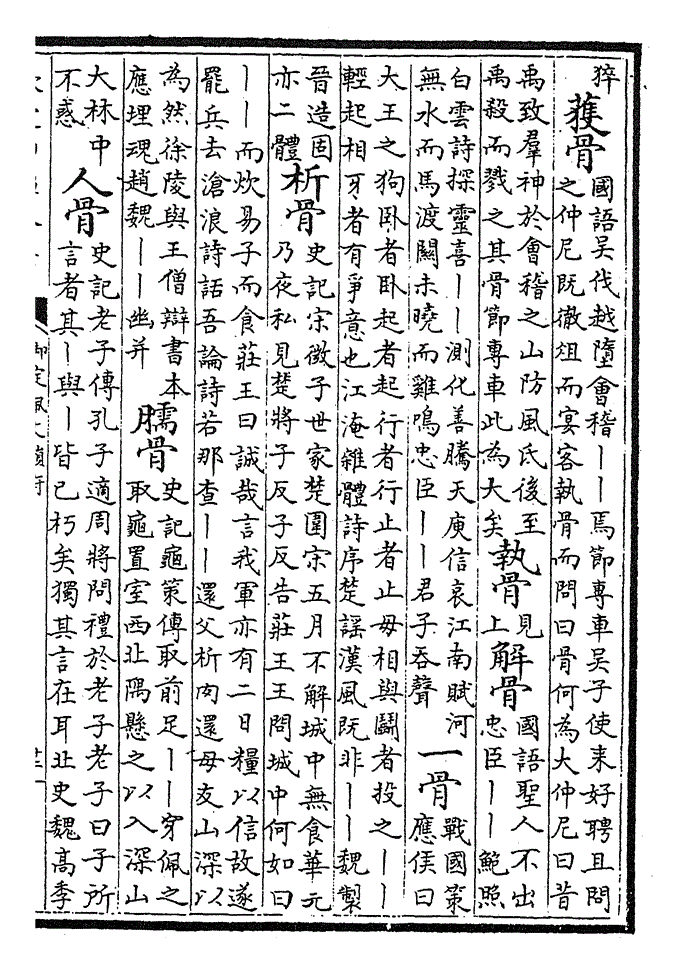 猝
獲骨
國語吳伐越墮會稽丨丨焉節專車吳子使来好聘且問
之仲尼既徹俎而宴客執骨而問曰骨何為大仲尼曰昔
禹致羣神於會稽之山防風氏後至
禹殺而戮之其骨節專車此為大矣
執骨
見
上
解骨
國語聖人不出
忠臣丨丨鮑照
白雲詩探靈喜丨丨測化善騰天庾信哀江南賦河
無水而馬渡關未曉而雞鳴忠臣丨丨君子吞聲
一骨
戰國策
應侯曰
大王之狗卧者卧起者起行者行止者止毋相與鬭者投之丨丨
輕起相牙者有爭意也江淹雜體詩序楚謠漢風既非丨丨魏製
晉造固
亦二體
析骨
史記宋微子世家楚圍宋五月不解城中無食華元
乃夜私見楚將子反子反告莊王王問城中何如曰
丨丨而炊易子而食莊王曰誠哉言我軍亦有二日糧以信故遂
罷兵去滄浪詩話吾論詩若那查丨丨還父析肉還母友山深以
為然徐陵與王僧辯書本
應埋魂趙魏丨丨幽并
臑骨
史記龜策傳取前足丨丨穿佩之
取龜置室西北隅懸之以入深山
大林中
不惑
人骨
史記老子傳孔子適周將問禮於老子老子曰子所
言者其丨與丨皆已朽矣獨其言在耳北史魏高季
御定佩文韻府